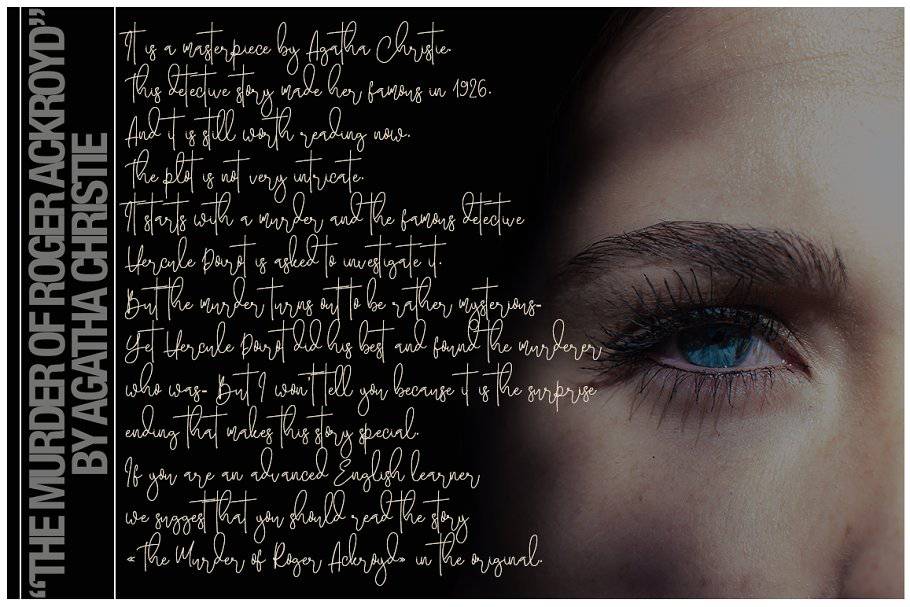 “THE MURDER OF ROGER ACKROYD”
BY AGATHA CHRISTIE
It is a masterpiece by Agatha Christie.
This detective story made her famous in 1926.
And it is still worth reading now.
The plot is not very intricate.
It starts with a murder and the famous detective
Hercule Poirot is asked to investigate it.
But the murder turns out to be rather mysterious-
Yet Hercule Poirot did his best and found the murderer
who was- But I won't tell you because it is the surprise
ending that makes this story special.
If you are an advanced English learner
we suggest that you should read the story
«The Murder of Roger Ackroyd» in the original.